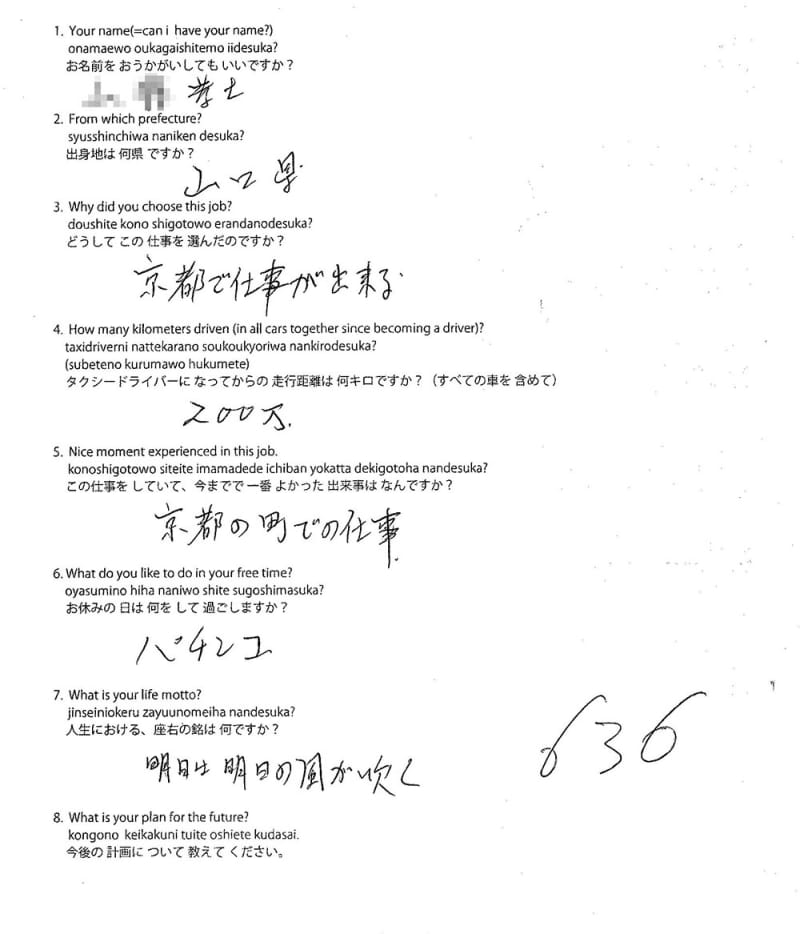 1. Your name(=can i have your name?)
onamaewo oukagaishitemo iidesuka?
お名前を おうかがいしても いいですか？
2. From which prefecture?
syusshinchiwa naniken desuka?
出身地は 何県 ですか？
山口県
3. Why did you choose this job?
doushite kono shigotowo erandanodesuka?
どうして この 仕事を 選んだのですか？
京都で仕事が出来る
4. How many kilometers driven (in all cars together since becoming a driver)?
taxidriverni nattekarano soukoukyoriwa nankirodesuka?
(subeteno kurumawo hukumete)
タクシードライバーに なってからの 走行距離は 何キロですか？（すべての車を 含めて）
200万.
5. Nice moment experienced in this job.
konoshigotowo siteite imamadede ichiban yokatta dekigotoha nandesuka?
この仕事を していて、今までで 一番 よかった 出来事は なんですか？
京都の町での仕事.
6. What do you like to do in your free time?
oyasumino hiha naniwo shite sugoshimasuka?
お休みの 日は 何を して 過ごしますか？
パチンコ
7. What is your life motto?
jinseiniokeru zayuunomeiha nandesuka?
人生における、座右の銘は 何ですか？
明日は明日の風が吹く
636
8. What is your plan for the future?
kongono keikakuni tuite oshiete kudasai.
今後の 計画に ついて 教えて ください。